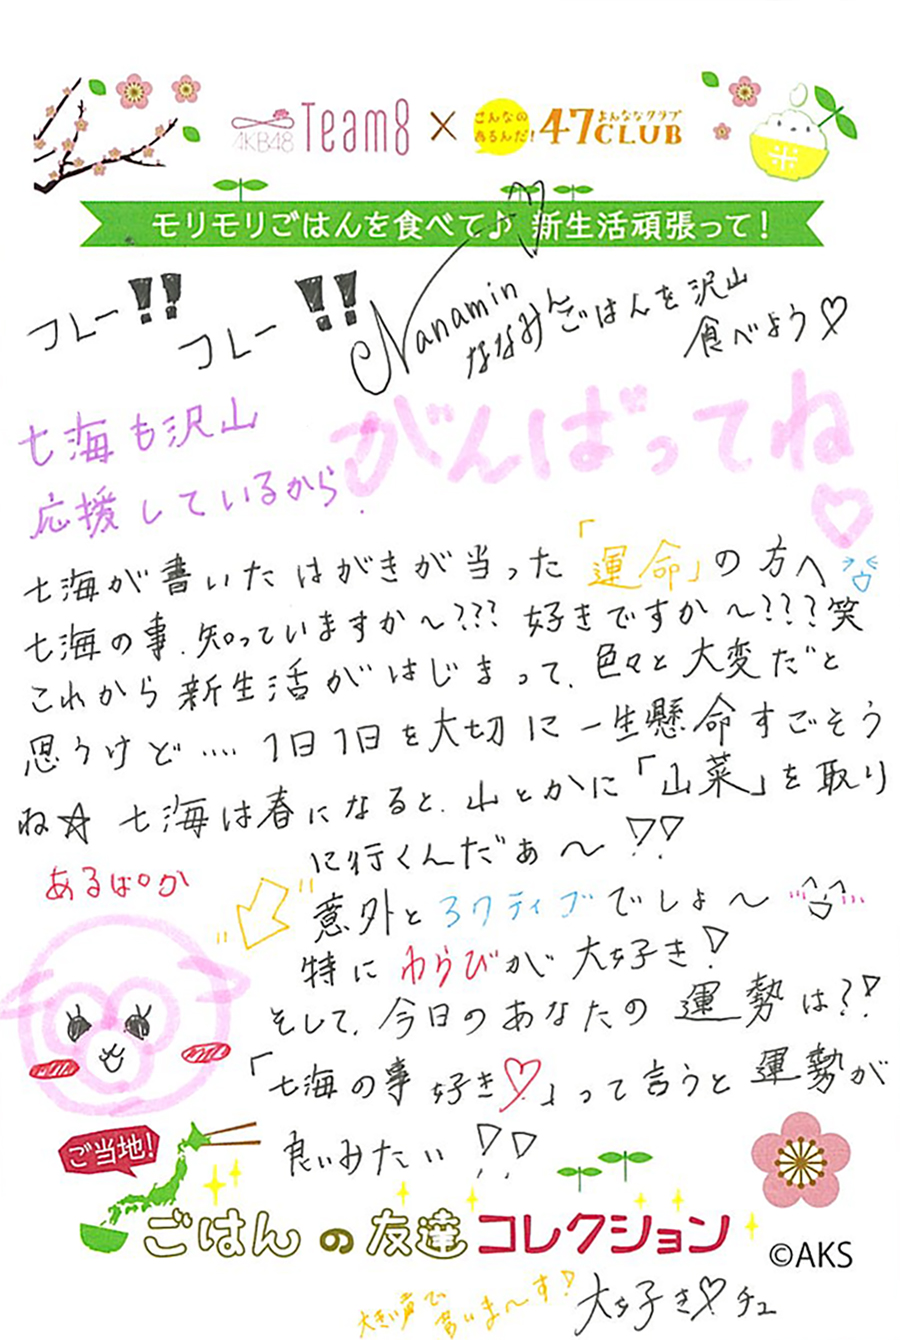 AKB48 Team8 × こんなのあるんだ! 47CLUB よんななクラブ
米
モリモリごはんを食べて♪ 新生活頑張って!
フレー!! フレー!! Nanamin ♡
ななみんごはんを沢山
食べよう♡
七海も沢山
応援しているから.
がんばってね♡
七海が書いたはがきが当った「運命」の方へ
七海の事.知っていますか〜??? 好きですか〜???笑
これから新生活がはじまって、色々と大変だと
思うけど‥‥1日1日を大切に一生懸命すごそう
ね☆ 七海は春になると.山とかに「山菜」を取り
に行くんだぁ〜!?!?
あるぱか
意外とアクティブでしょ〜
特にわらびが大好き!
そして、今日のあなたの運勢は??
「七海の事好き♡」って言うと運勢が
良いみたい!!
ご当地!
ごはんの友達コレクション
©AKS
大きい声で
言いま〜す!
大好き♡チュ